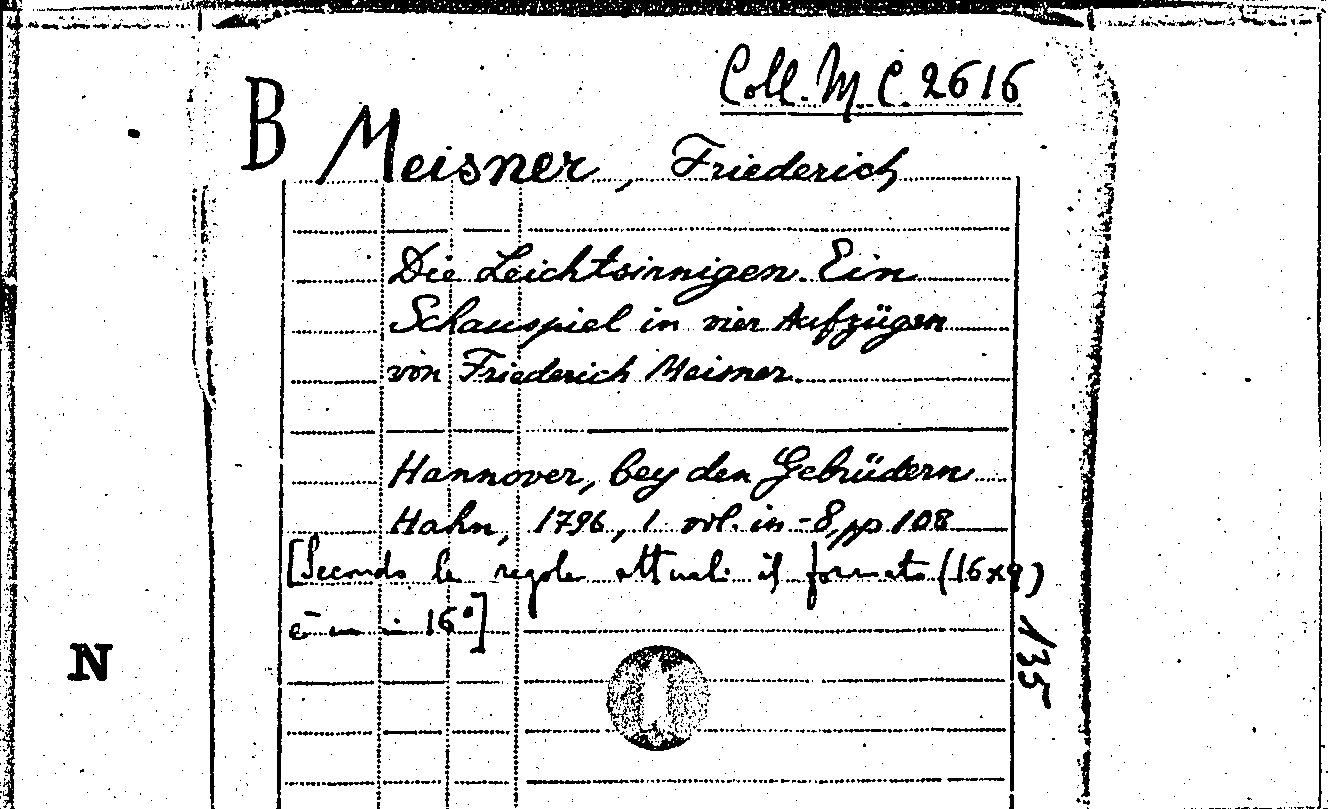 Coll. M. C. 2616
B Meisner, Friederich
Die Leichtsinnigen. Ein
Schauspiel in vier Aufzügen
von Friederich Meisner.
Hannover, bey den Gebrüdern
Hahn, 1796, 1 vol. in -8, pp 108
[Secondo le regole attuali il formato (16x9)
è un in 16°]
135
N